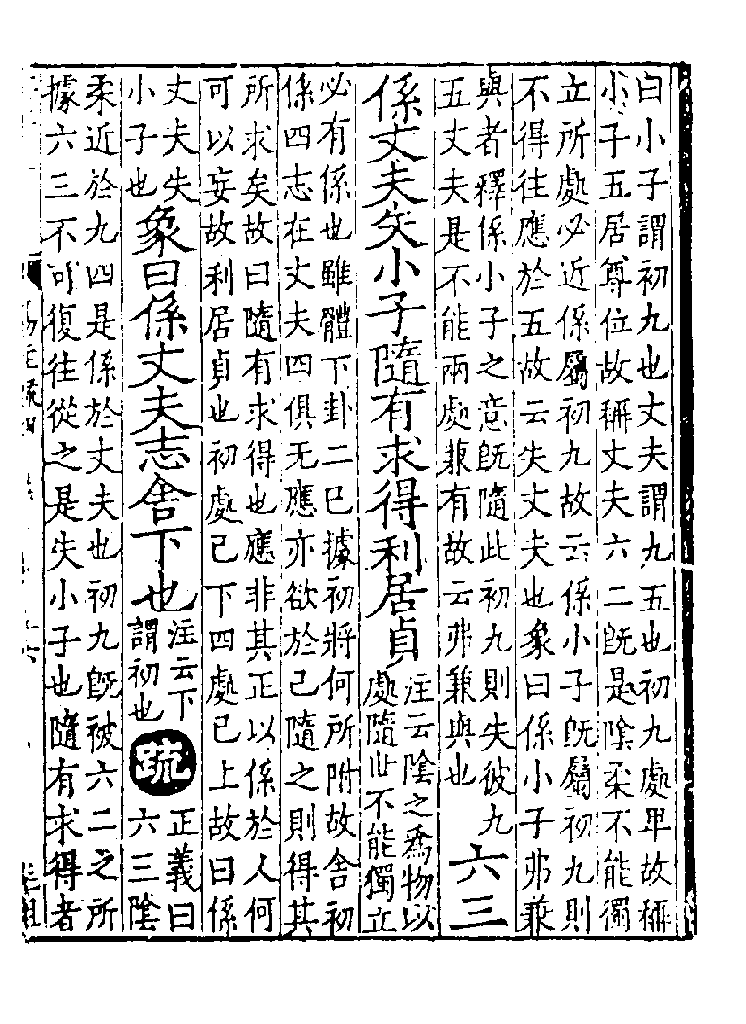 曰小子謂初九也丈夫謂九五也初九處卑故稱
小子五居尊位故稱丈夫六二既是陰柔不能獨
立所處必近係屬初九故云係小子既屬初九則
不得往應於五故云失丈夫也象曰係小子弗兼
與者釋係小子之意既隨此初九則失彼九
五丈夫是不能兩處兼有故云弗兼與也
六三
係丈夫失小子隨有求得利居貞
注云陰之爲物以
處隨世不能獨立
必有係也雖體下卦二巳據初將何所附故舍初
係四志在丈夫四俱无應亦欲於己隨之則得其
所求矣故曰隨有求得也應非其正以係於人何
可以妄故利居貞也初處己下四處己上故曰係
丈夫失
小子也
象曰係丈夫志舍下也
注云下
謂初也
疏
正義曰
六三陰
柔近於九四是係於丈夫也初九既被六二之所
據六三不可復往從之是失小子也隨有求得者